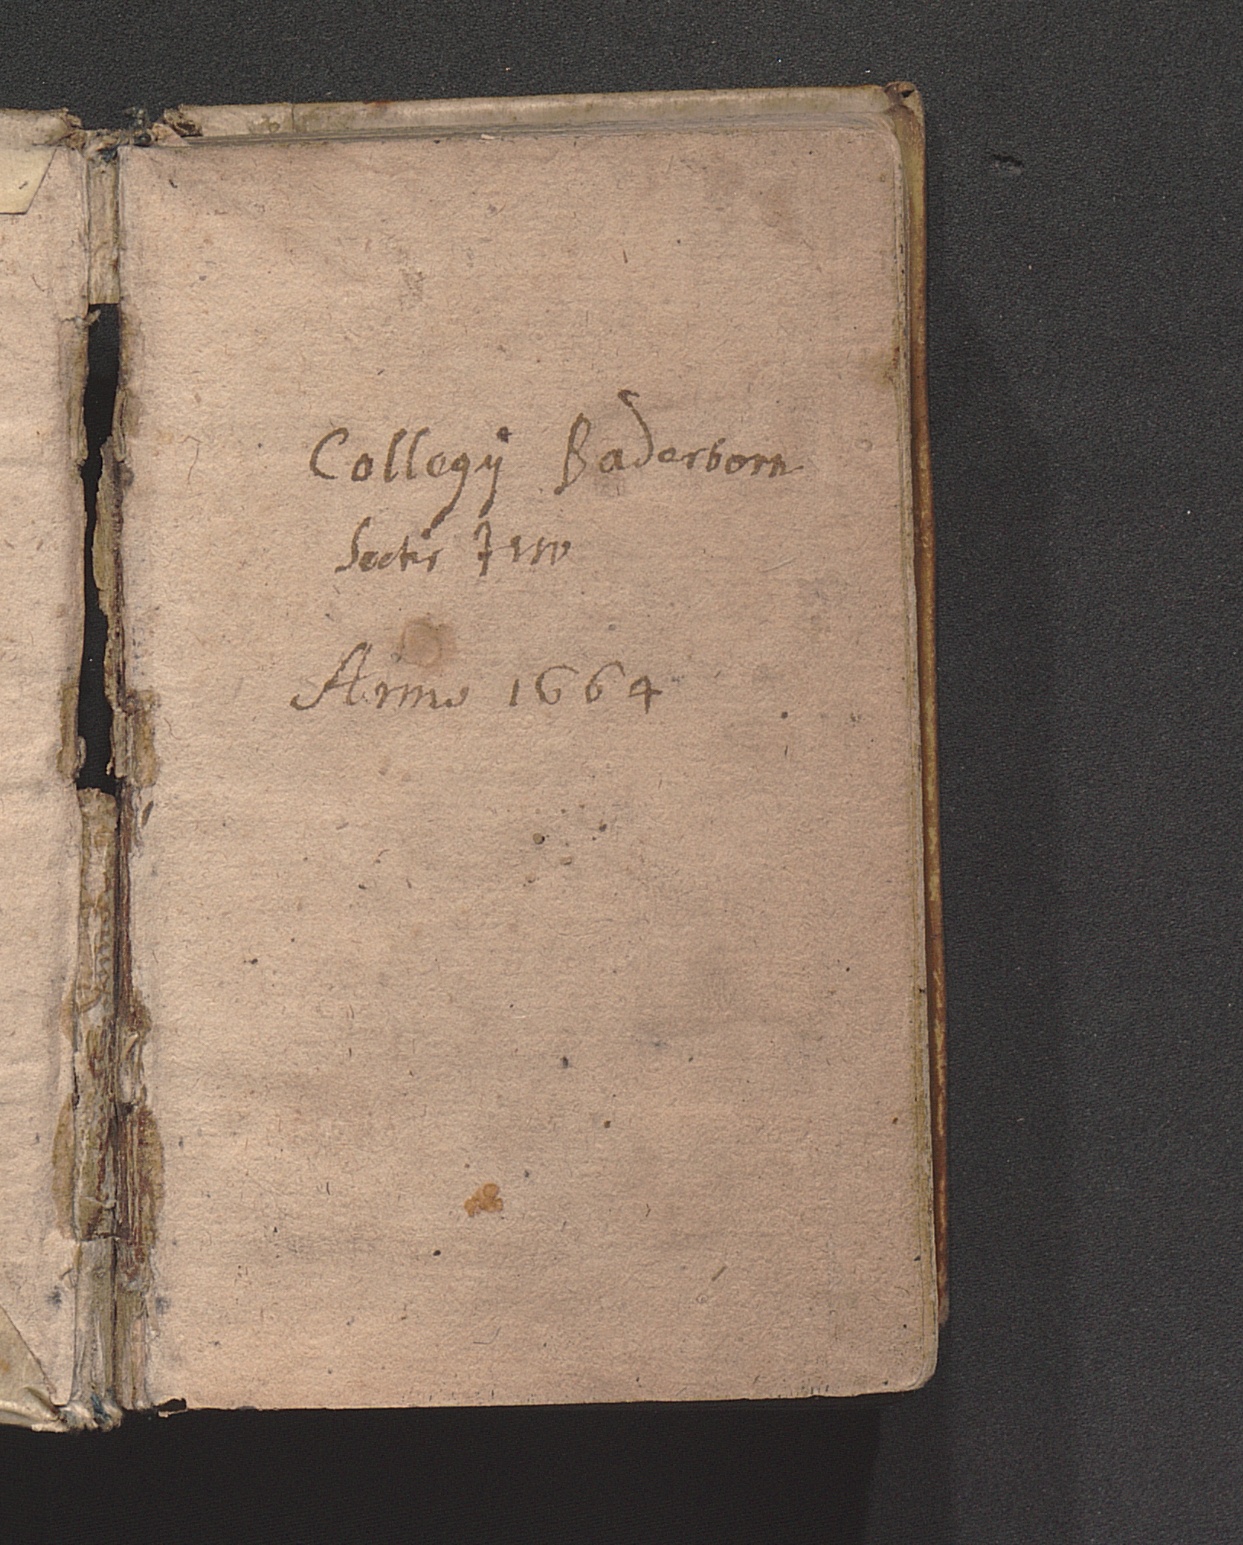 Collegij Paderborn
Soctis Jesu
Anno 1664